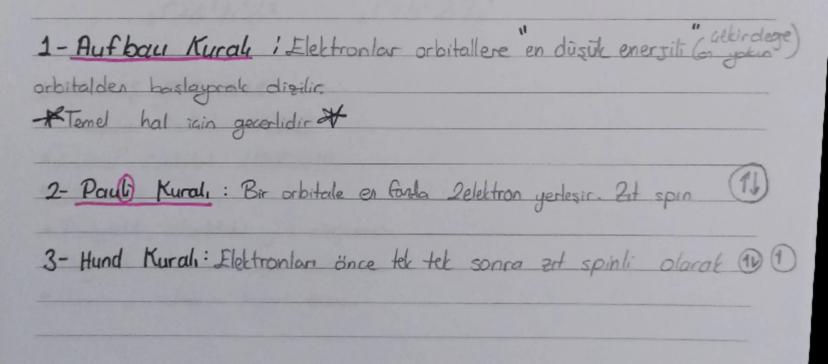 1- Aufbau Kuralı ; Elektronlar orbitallere "en düşük enerjili" (çekirdeğe en yakın)
orbitalden başlayarak dizilir.
*Temel hal için geçerlidir*
2- Pauli Kuralı : Bir orbitale en fazla 2elektron yerleşir. Zıt spin ↑↓
3- Hund Kuralı: Elektronları önce tek tek sonra zıt spinli olarak ↑↓ ↑